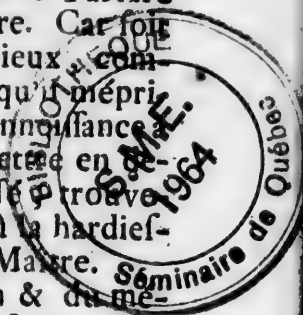 re. Car soit
ieux com-
qu'il mépri-
nnoissance
en
trouve
la hardies-
Maître.
& du mé-
BIBLIOTHÈQUE
S.M.E.
1964
Séminaire de Québec